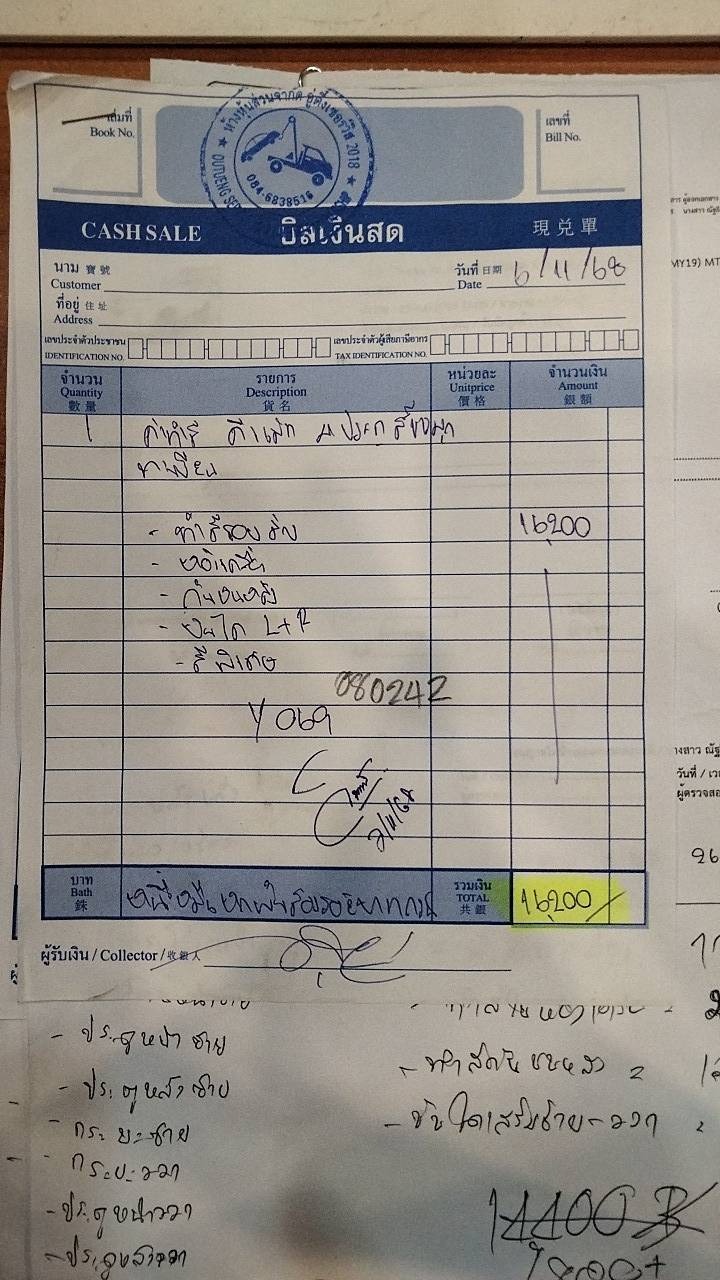 เล่มที่
Book No.
เลขที่
Bill No.
ห้างหุ้นส่วนจำกัด อู่ดึ๋งเซอร์วิส 2018
084-6838516
CASH SALE บิลเงินสด 現兑單
นาม 寶號
Customer
วันที่ 日期
Date 6/11/68
ที่อยู่ 住址
Address
เลขประจำตัวประชาชน
IDENTIFICATION NO.
เลขประจำตัวผู้เสียภาษีอากร
TAX IDENTIFICATION NO.
จำนวน รายการ หน่วยละ จำนวนเงิน
Quantity Description Unitprice Amount
數量 貨名 價格 銀額
1 ค่าทำสี
- ทำสีรอบคัน 16,200
- กันชนหลัง
- บันได L+R
- สีพิเศษ
080242
Y 069
บาท
Bath
銖
รวมเงิน
TOTAL
共銀
16,200/
ผู้รับเงิน / Collector / 收銀人
- ประตูหน้าซ้าย
- ประตูหลังซ้าย
- กระบะซ้าย
- กระบะขวา
- ประตูหน้าขวา
- ประตูหลังขวา
- ทำสีกันชนหลัง =
- บันไดเสริมซ้าย-ขวา
14400 B
MY19) MT
างสาว ณัฐ
วันที่ / เว
ผู้ตรวจสอ
26